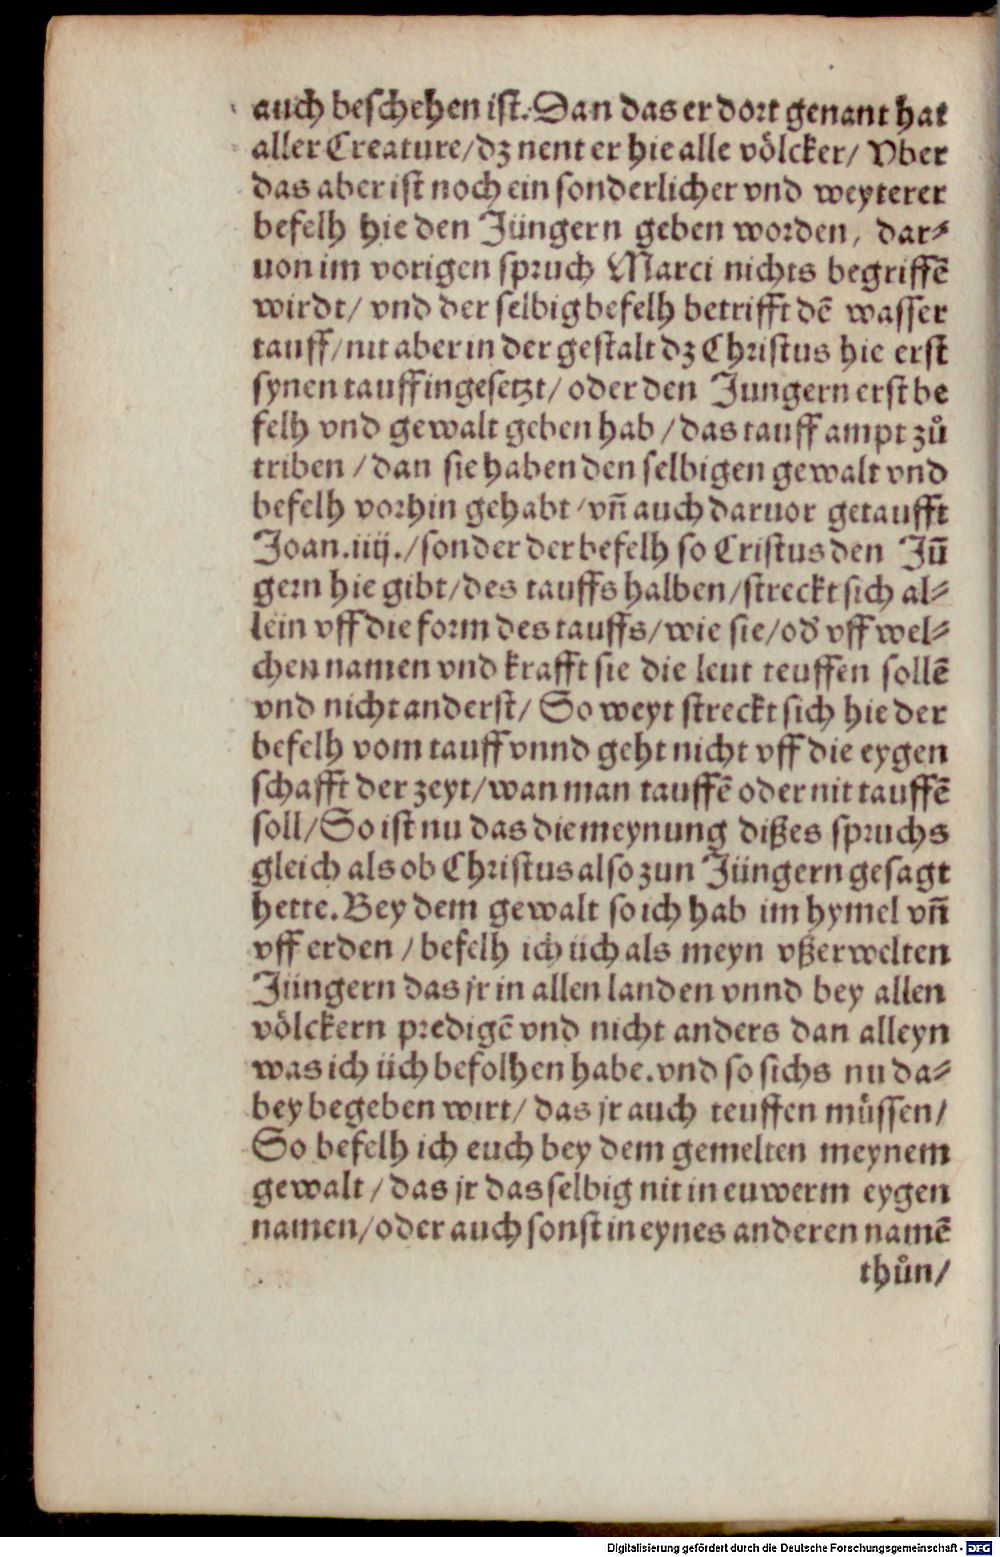 auch beschehen ist. Dan das er dort genant hat
aller Creature/ dz nent er hie alle völcker/ Vber
das aber ist noch ein sonderlicher vnd weyterer
befelh hie den Jüngern geben worden, dar⸗
uon im vorigen spruch Marci nichts begriffē
wirdt/ vnd der selbig befelh betrifft dē wasser
tauff/ nit aber in der gestalt dz Christus hie erst
synen tauff ingesetzt/ oder den Jungern erst be
felh vnd gewalt geben hab / das tauff ampt zů
triben / dan sie haben den selbigen gewalt vnd
befelh vorhin gehabt / vn̄ auch daruor getaufft
Joan. iiij./ sonder der befelh so Cristus den Jǖ
gern hie gibt/ des tauffs halben/ streckt sich al⸗
lein vff die form des tauffs/ wie sie/ od̕ vff wel⸗
chen namen vnd krafft sie die leut teuffen sollē
vnd nicht anderst/ So weyt streckt sich hie der
befelh vom tauff vnnd geht nicht vff die eygen
schafft der zeyt/ wan man tauffē oder nit tauffē
soll/ So ist nu das die meynung dißes spruchs
gleich als ob Christus also zun Jüngern gesagt
hette. Bey dem gewalt so ich hab im hymel vn̄
vff erden / befelh ich üch als meyn vßerwelten
Jüngern das jr in allen landen vnnd bey allen
völckern predigē vnd nicht anders dan alleyn
was ich üch befolhen habe. vnd so sichs nu da⸗
bey begeben wirt/ das jr auch teuffen müssen/
So befelh ich euch bey dem gemelten meynem
gewalt / das jr das selbig nit in euwerm eygen
namen/ oder auch sonst in eynes anderen namē
thůn/
Digitalisierung gefördert durch die Deutsche Forschungsgemeinschaft - DFG